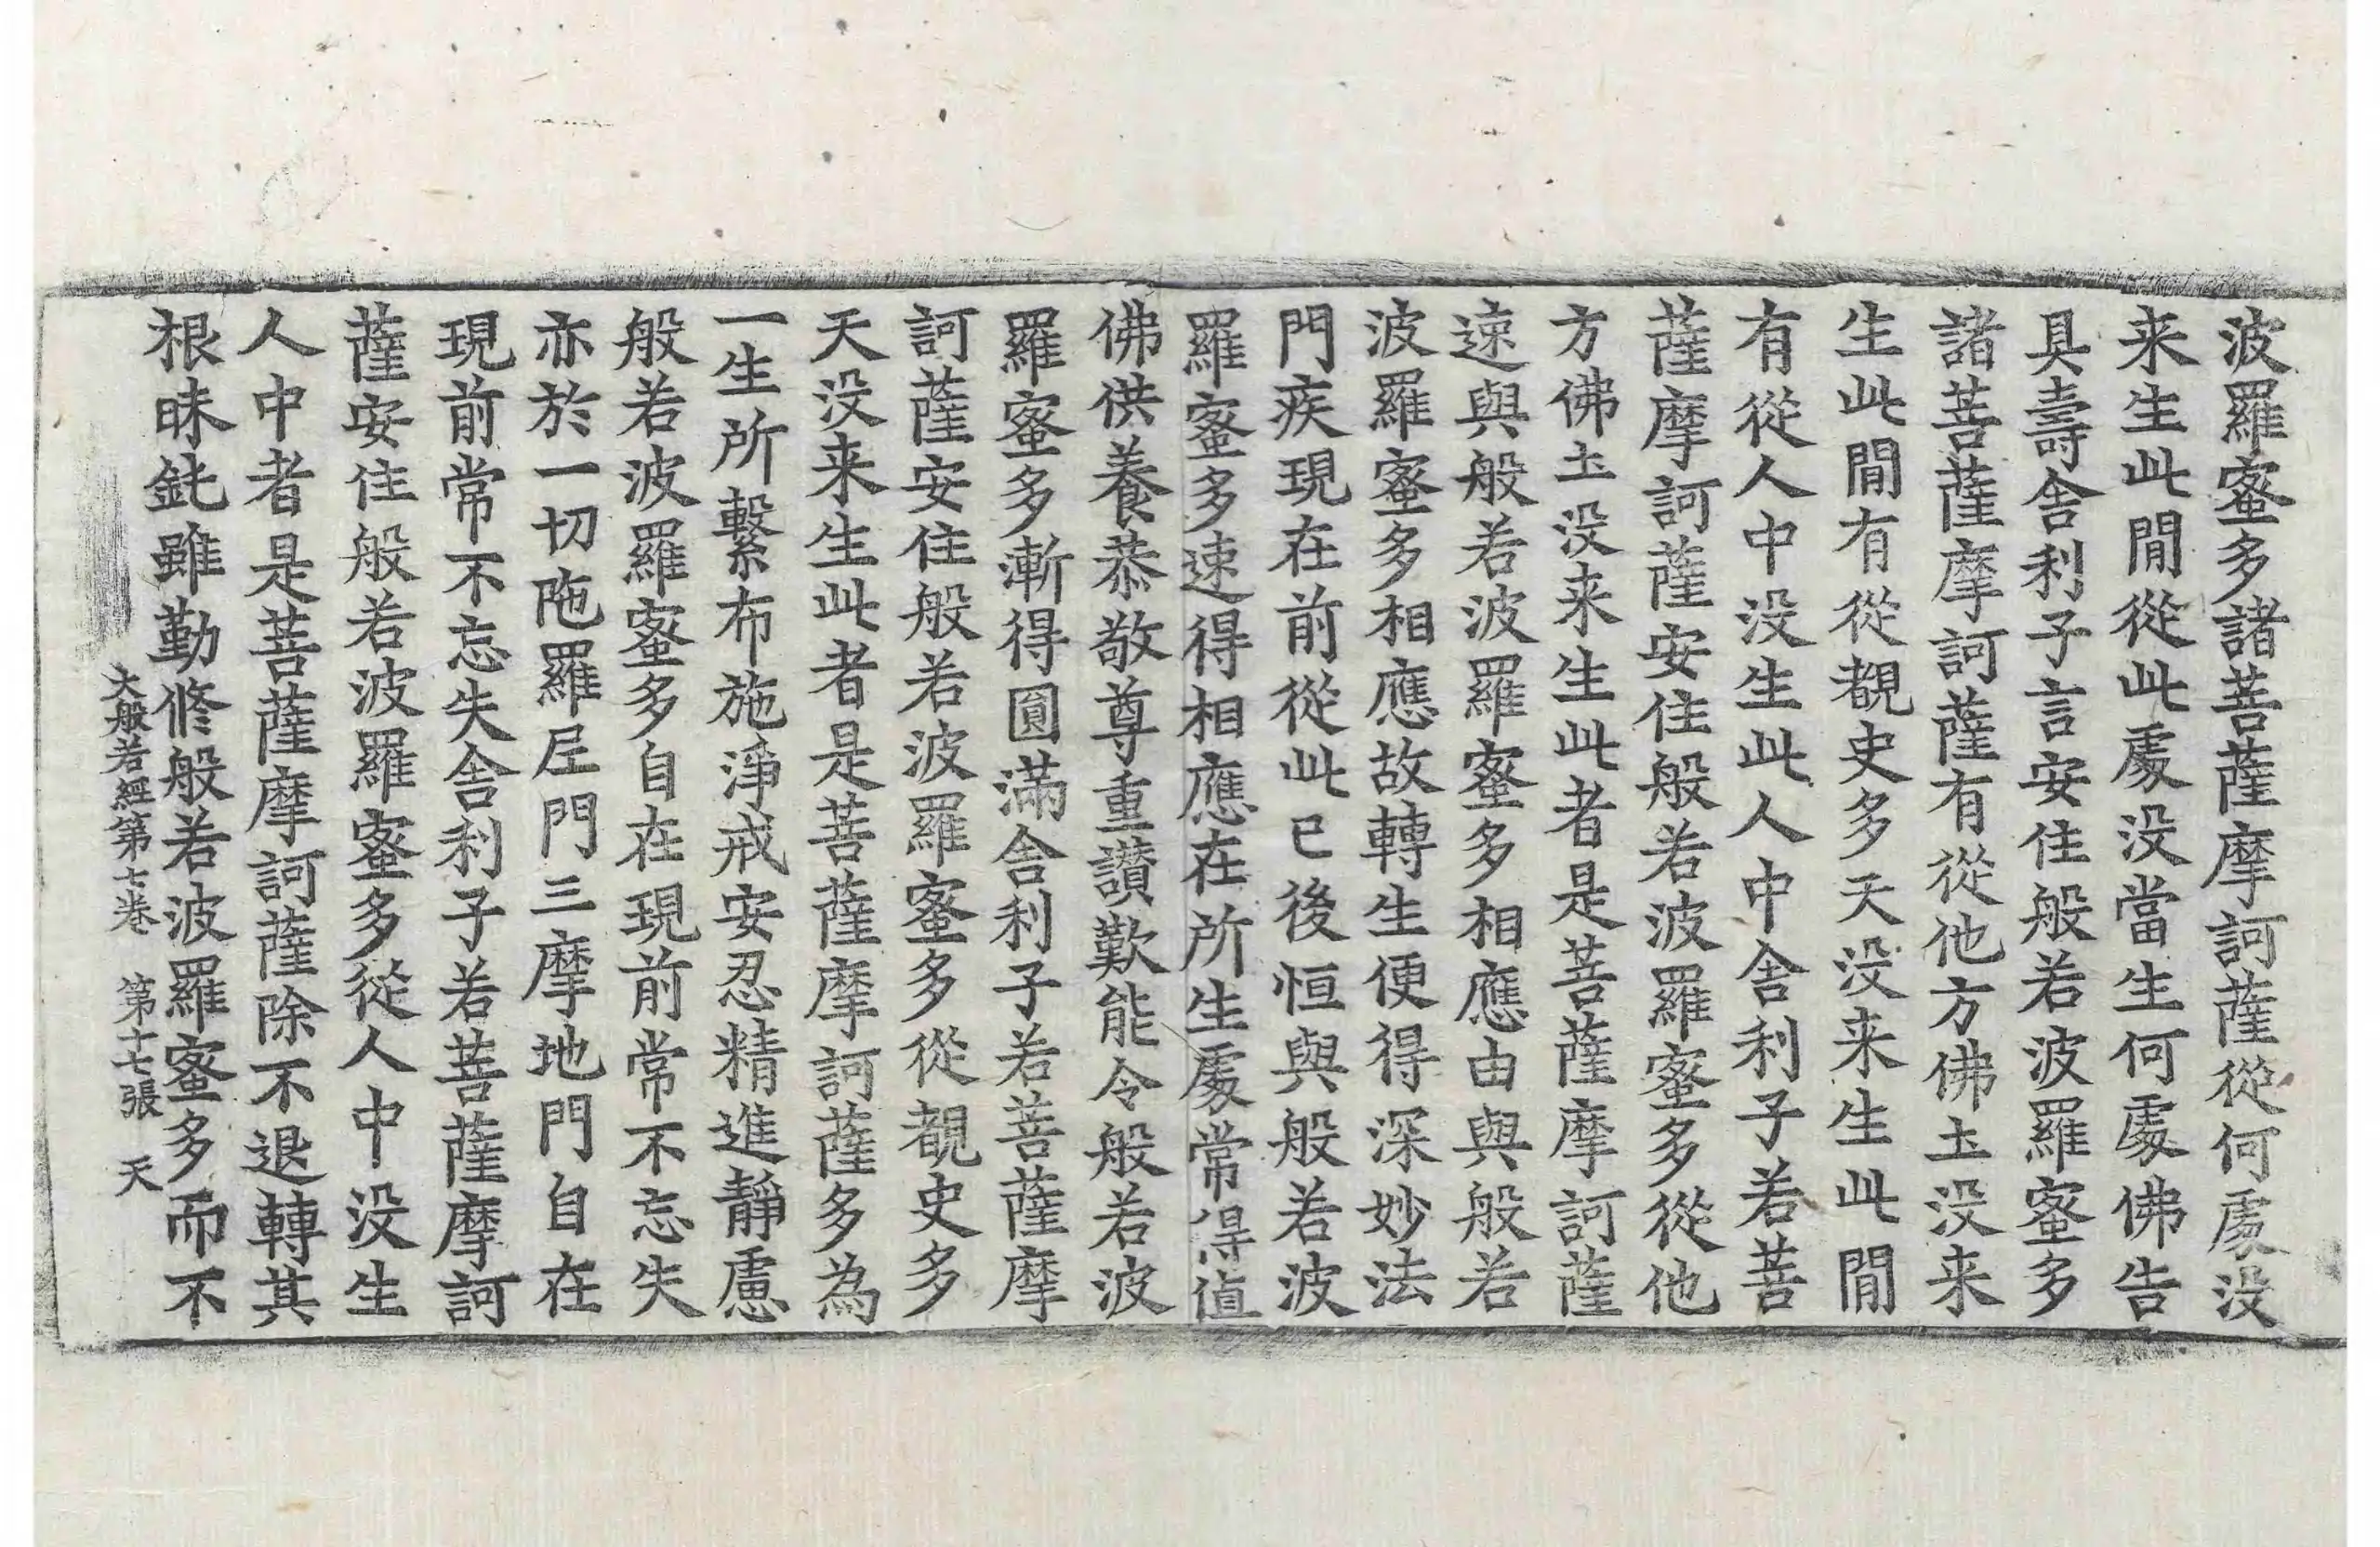 波羅蜜多諸菩薩摩訶薩從何處没
来生此閒從此處没當生何處佛告
具壽舍利子言安住般若波羅蜜多
諸菩薩摩訶薩有從他方佛土没来
生此閒有從覩史多天没来生此閒
有從人中没生此人中舍利子若菩
薩摩訶薩安住般若波羅蜜多從他
方佛土没来生此者是菩薩摩訶薩
速與般若波羅蜜多相應由與般若
波羅蜜多相應故轉生便得深妙法
門疾現在前從此已後恒與般若波
羅蜜多速得相應在所生處常得值
佛供養恭敬尊重讚歎能令般若波
羅蜜多漸得圓滿舍利子若菩薩摩
訶薩安住般若波羅蜜多從覩史多
天没来生此者是菩薩摩訶薩多為
一生所繫布施淨戒安忍精進靜慮
般若波羅蜜多自在現前常不忘失
亦於一切陁羅尼門三摩地門自在
現前常不忘失舍利子若菩薩摩訶
薩安住般若波羅蜜多從人中没生
人中者是菩薩摩訶薩除不退轉其
根昧鈍雖勤修般若波羅蜜多而不
大般若經第七卷 第十七張 天